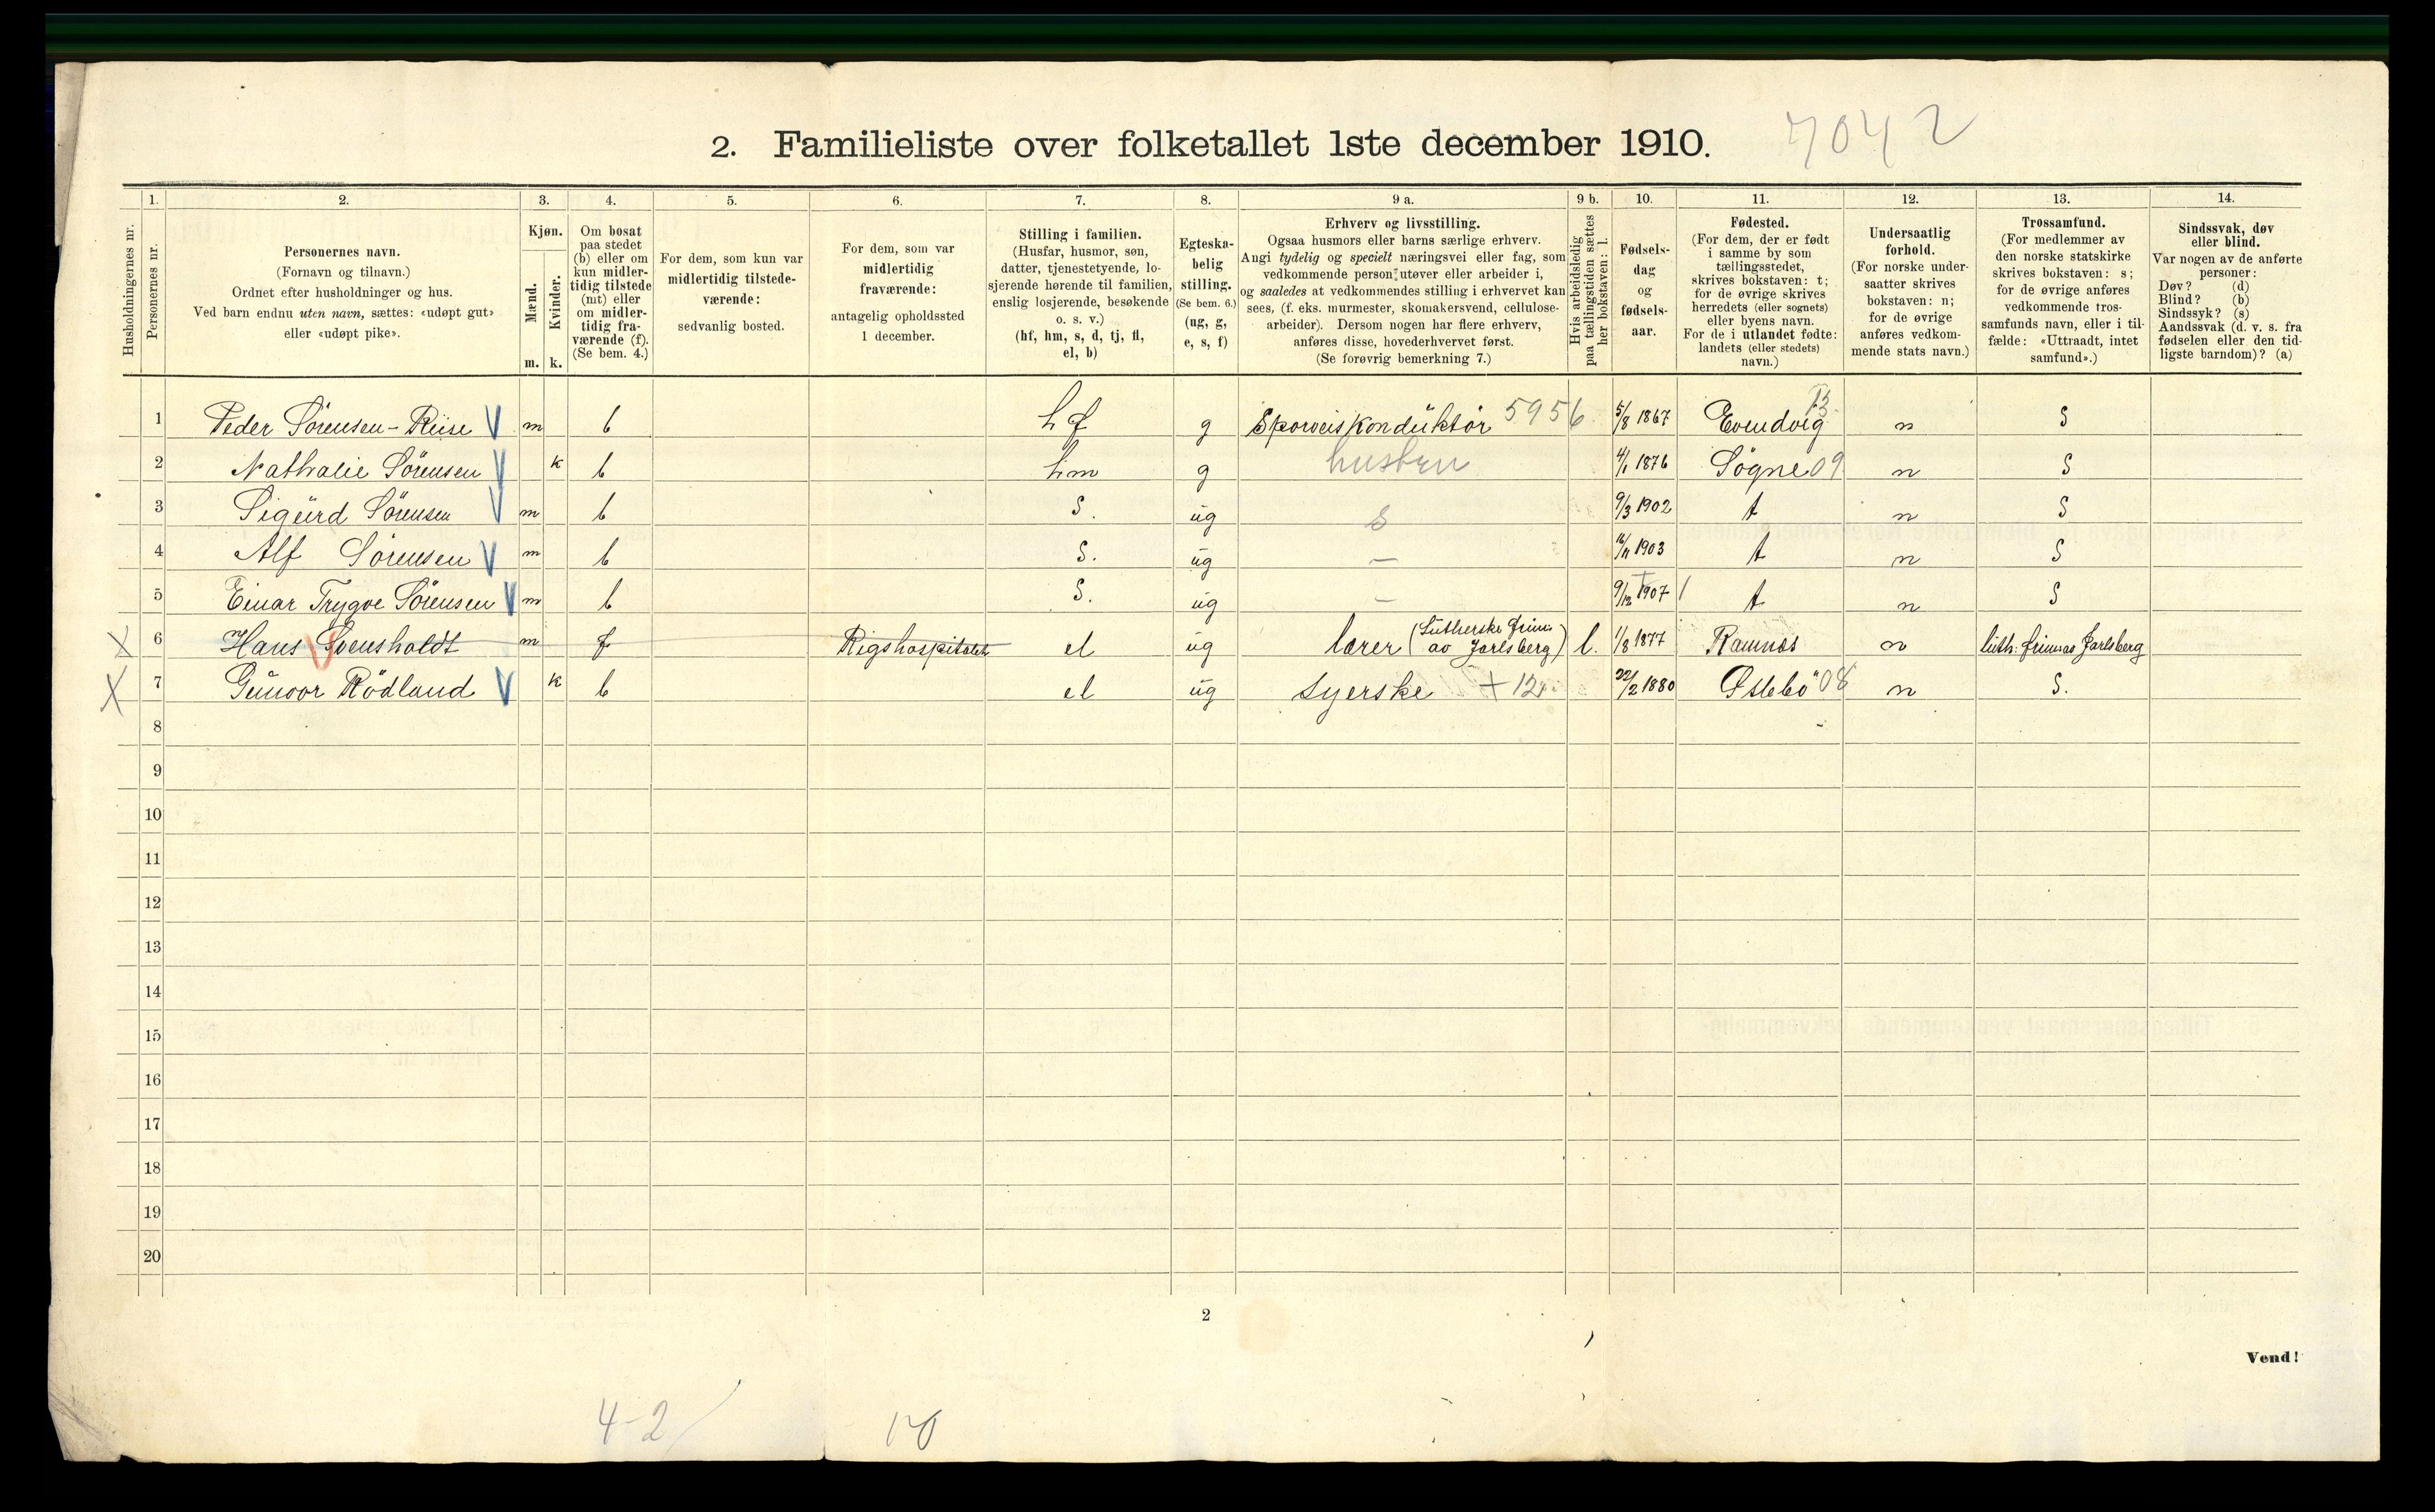 2. Familieliste over folketallet 1ste december 1910. 7042
1. 2. 3. 4. 5. 6. 7. 8. 9 a. 9 b. 10. 11. 12. 13. 14.
Husholdningernes nr.
Personernes nr.
Personernes navn.
(Fornavn og tilnavn.)
Ordnet efter husholdninger og hus.
Ved barn endnu uten navn, sættes: «udøpt gut»
eller «udøpt pike».
Kjøn.
Mænd.
m.
Kvinder.
k.
Om bosat
paa stedet
(b) eller om
kun midler-
tidig tilstede
(mt) eller
om midler-
tidig fra-
værende (f).
(Se bem. 4.)
For dem, som kun var
midlertidig tilstede-
værende:
sedvanlig bosted.
For dem, som var
midlertidig
fraværende:
antagelig opholdssted
1 december.
Stilling i familien.
(Husfar, husmor, søn,
datter, tjenestetyende, lo-
sjerende hørende til familien,
enslig losjerende, besøkende
o. s. v.)
(hf, hm, s, d, tj, fl,
el, b)
Egteska-
belig
stilling.
(Se bem. 6.)
(ug, g,
e, s, f)
Erhverv og livsstilling.
Ogsaa husmors eller barns særlige erhverv.
Angi tydelig og specielt næringsvei eller fag, som
vedkommende person utøver eller arbeider i,
og saaledes at vedkommendes stilling i erhvervet kan
sees, (f. eks. murmester, skomakersvend, cellulose-
arbeider). Dersom nogen har flere erhverv,
anføres disse, hovederhvervet først.
(Se forøvrig bemerkning 7.)
Hvis arbeidsledig
paa tællingstiden sættes
her bokstaven: l.
Fødsels-
dag
og
fødsels-
aar.
Fødested.
(For dem, der er født
i samme by som
tællingsstedet,
skrives bokstaven: t;
for de øvrige skrives
herredets (eller sognets)
eller byens navn.
For de i utlandet fødte:
landets (eller stedets)
navn.)
Undersaatlig
forhold.
(For norske under-
saatter skrives
bokstaven: n;
for de øvrige
anføres vedkom-
mende stats navn.)
Trossamfund.
(For medlemmer av
den norske statskirke
skrives bokstaven: s;
for de øvrige anføres
vedkommende tros-
samfunds navn, eller i til-
fælde: «Uttraadt, intet
samfund».)
Sindssvak, døv
eller blind.
Var nogen av de anførte
personer:
Døv? (d)
Blind? (b)
Sindssyk? (s)
Aandssvak (d. v. s. fra
fødselen eller den tid-
ligste barndom)? (a)
1 Peder Sörensen-Riise V m b hf g Sporveiskonduktör 5956 5/8 1867 Evendvig 13 n S
2 Nathalie Sörensen V k b hm g husben 4/1 1876 Sögne 09 n S
3 Sigurd Sörensen V m b S. ug s 9/3 1902 t n S
4 Alf Sörensen V m b S. ug — 16/11 1903 t n S
5 Einar Trygve Sörensen V m b S. ug — 9/12 1907 t n S
X 6 Hans Svensholdt V m f Rigshospitalet el ug lærer (Lutherske frim. av Jarlsberg) l. 1/8 1877 Ramnæs n luth. frim. av Jarlsberg
X 7 Gunvor Rödland V k b el ug Syerske + 12 22/2 1880 Ölebö 08 n S.
8
9
10
11
12
13
14
15
16
17
18
19
20
2
Vend!
4-2 10